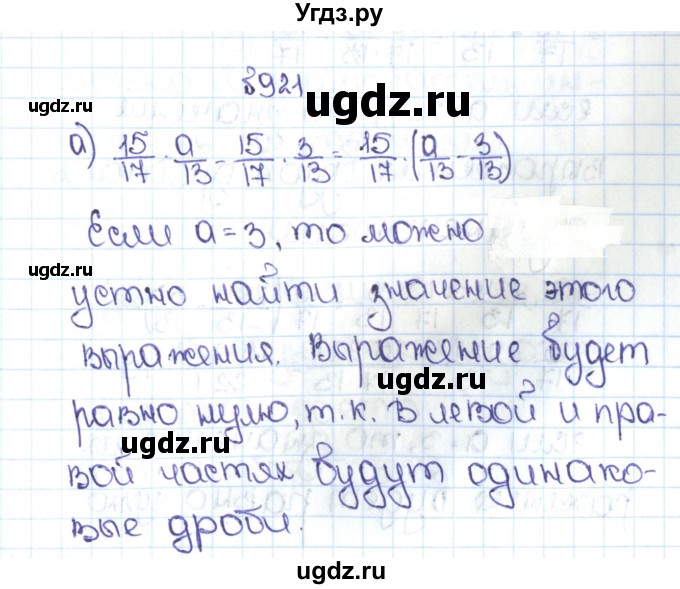 Угдз.ру
§921
ugdz.ru
ugdz.ru
а) 15/17 · a/13 - 15/17 · 3/13 = 15/17 · (a/13 - 3/13)
Если a = 3, то можно
ugdz.ru
устно найти значение этого
выражения. Выражение будет
ugdz.ru
равно нулю, т.к. в левой и пра-
ugdz.ru
вой частях будут одинако-
вые дроби.
ugdz.ru